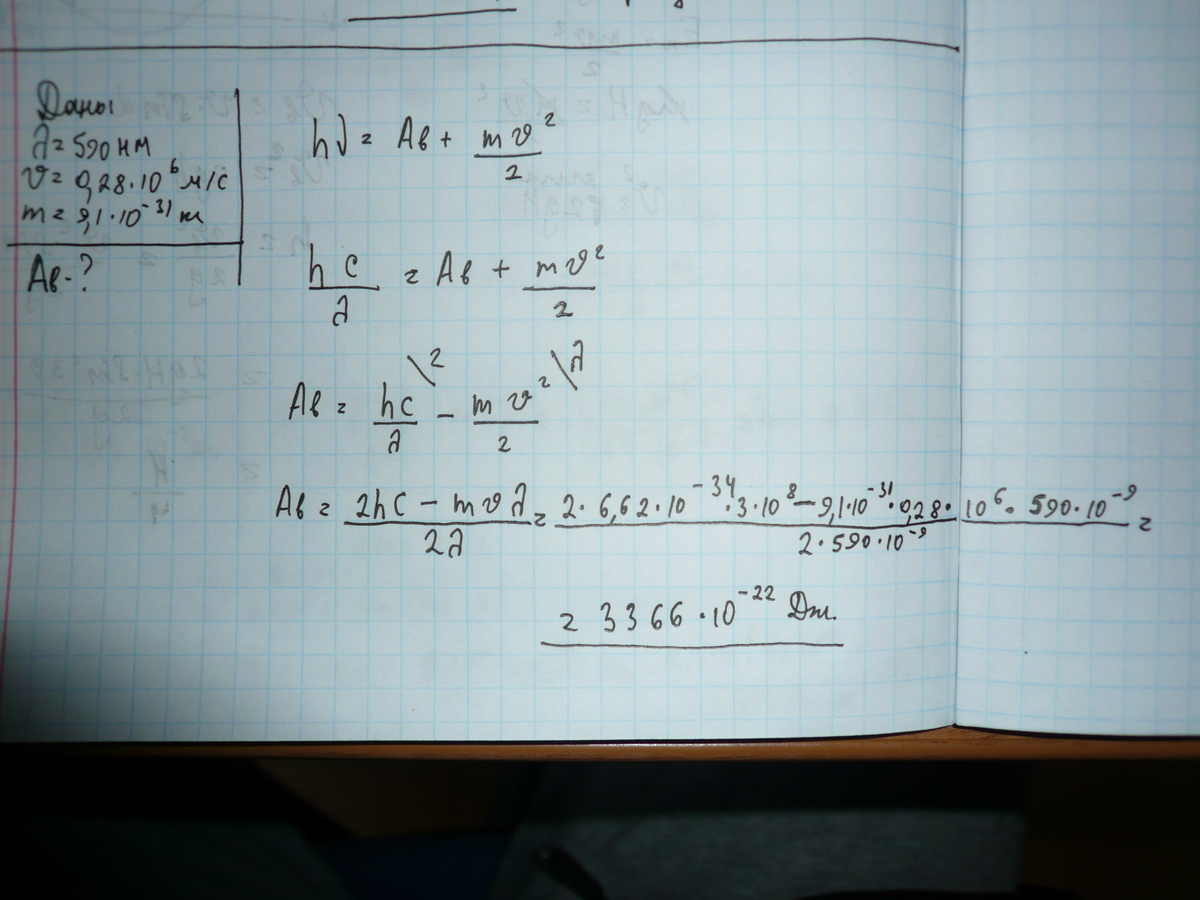 Даны
λ = 590 нм
υ = 0,28·10⁶ м/с
m = 9,1·10⁻³¹ кг
Aв - ?
hν = Aв + mυ²/2
hc/λ = Aв + mυ²/2
Aв = hc\²/λ - mυ²\λ/2
Aв = 2hc - mυλ/2λ = 2·6,62·10⁻³⁴·3·10⁸ - 9,1·10⁻³¹·0,28·10⁶·590·10⁻⁹/2·590·10⁻⁹ =
= 3366·10⁻²² Дж.